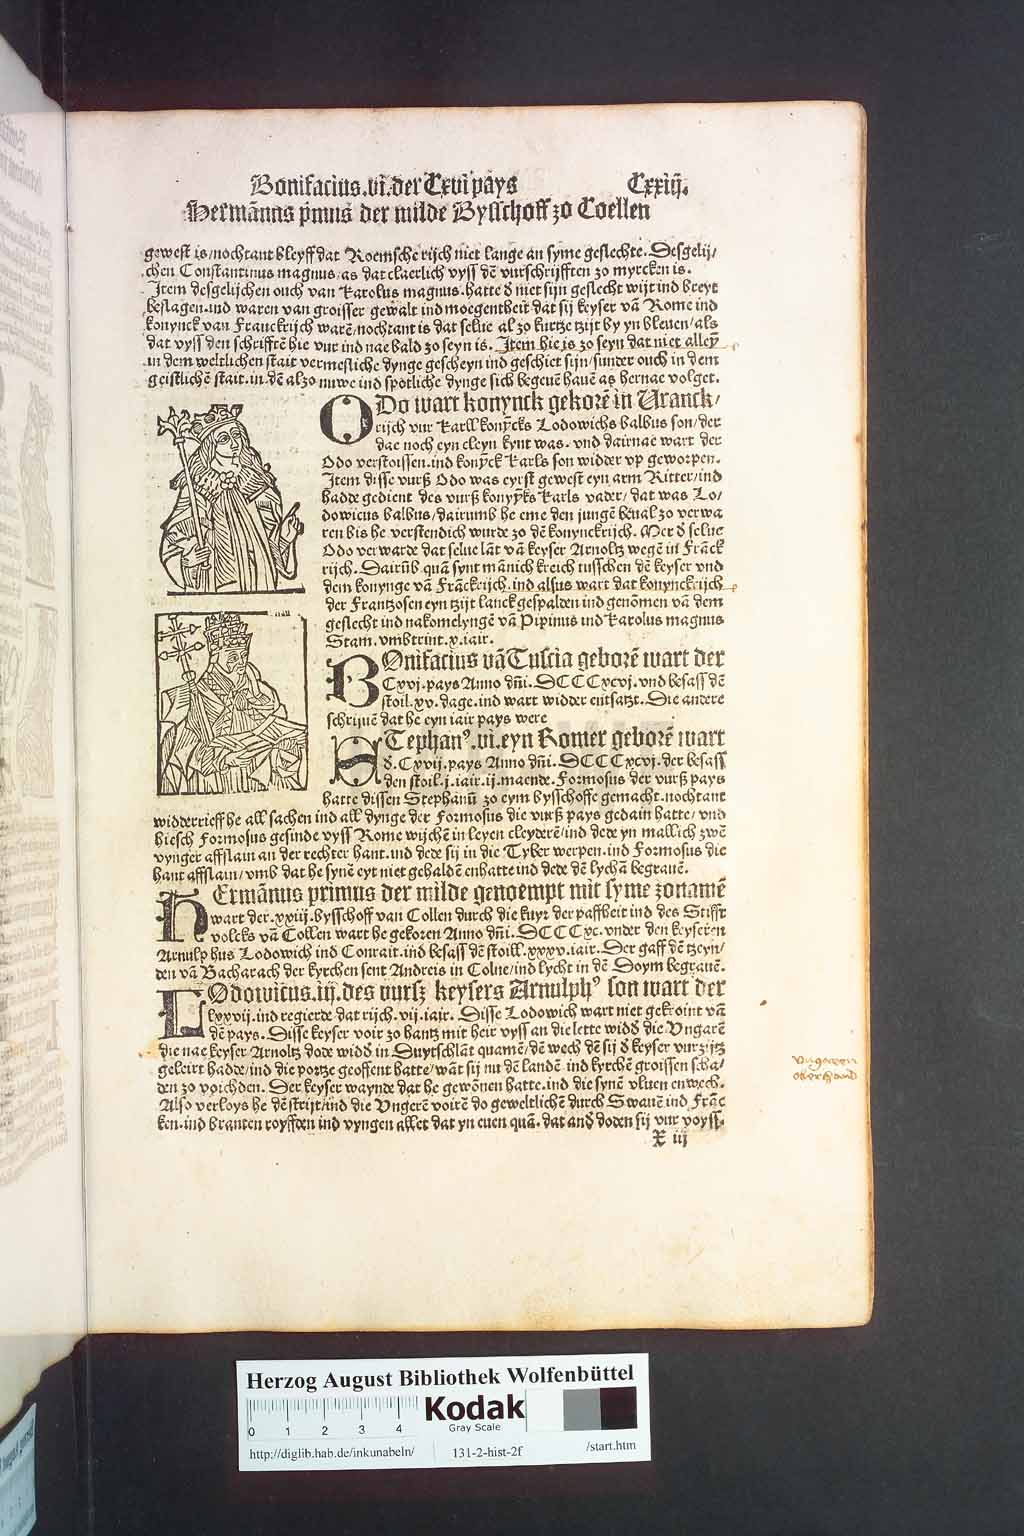 Bonifacius.vi.der Cxvi pays Cxxiij.
Hermānus p̄mus der milde Bysschoff zo Coellen
gewest is/nochtant bleyff dat Roemsche rijch niet lange an syme geslechte. Desgelij/
chen Constantinus magnus/as dat claerlich vyss dē vurschrijfften zo mercken is.
Item desgelijchen ouch van Karolus magnus.hatte d niet sijn geslecht wijt ind breyt
beslagen.ind waren van groisser gewalt ind moegentheit dat sij keyser vā Rome ind
konynck van Franckrijch warē/nochtant is dat selue al zo kurtze tzijt by yn bleuen/als
dat vyss den schrifftē hie vur ind nae bald zo seyn is. Item hie is zo seyn dat niet alleyn
in dem weltlichen stait vermesliche dynge gescheyn ind geschiet sijn/sunder ouch in dem
geistlichē stait.in dē alzo nuwe ind spotliche dynge sich begeuē hauē as hernae volget.
ODo wart konynck gekorē in Vranck/
rijch vur Karll konyncks Lodowichs balbus son/der
dae noch eyn cleyn kynt was. vnd dairnae wart der
Odo verstoissen.ind konyck Karls son widder vp geworpen.
Item disse vurß Odo was eyrst gewest eyn arm Ritter/ind
hadde gedient des vurß konyncks Karls vader/dat was Lo/
dowicus balbus/dairumb he eme den jungē beual zo verwa
ren bis he verstendich wurde zo dē konynckrijch. Mer d selue
Odo verwarde dat selue lāt vā keyser Arnoltz wegē in Frāck
rijch. Dairūb quā synt mānich kreich tusschen dē keyser vnd
dem konynge vā Franckrijch.ind alsus wart dat konynckrijch
der Frantzosen eyn tzijt lanck gespalden ind genōmen vā dem
geslecht ind nakomelyngē vā Pipinus ind Karolus magnus
Stam. vmbtrint.x.iair.
BOnifacius vā Tuscia geborē wart der
Cxvj.pays Anno dn̄i. DCCCxcvj.vnd besass dē
stoil.xv.dage.ind wart widder entsatzt. Die andere
schrijuē dat he eyn iair pays were
STephanꝰ.vi.eyn Romer geborē wart
d.Cxvij.pays Anno dn̄i. DCCCxcvj.der besass
den stoil.j.iair.ij.maende. Formosus der vurß pays
hatte dissen Stephanū zo eym bysschoffe gemacht.nochtant
widderrieff he all sachen ind all dynge der Formosus die vurß pays gedain hatte/vnd
hiesch Formosus gesinde vyss Rome wijchē in leyen cleyderē/ind dede yn mallich zwē
vynger affslain an der rechter hant.ind dede sij in die Tyber werpen.ind Formosus die
hant affslain/vmb dat he synē eyt niet gehaldē enhatte ind dede dē lychā begrauē.
HErmānus primus der milde genoempt mit syme zonamē
wart der.xxiij.bysschoff van Collen durch die kuyr der paffheit ind des Stifft
volcks vā Collen wart he gekozen Anno dn̄i. DCCCxc.vnder den keyseren
Arnulphus Lodowich ind Conrait.ind besass dē stoill.xxxv.iair. Der gaff dē tzeyn/
den vā Bacharach der kyrchen sent Andreis in Colne/ind lycht in dē Doym begrauē.
LOdowicus.iij.des vurß keysers Arnulphꝰ son wart der
lxxvij.ind regierde dat rijch.vij.iair. Disse Lodowich wart niet gekroint vā
dē pays. Disse keyser voir zo hantz mit heir vyss an die lette widd die Vngarē
die nae keyser Arnoltz dode widd in Duytschlāt quamē/dē wech dē sij d keyser vurzijtz
geleirt hadde/ind die portze geoffent hatte/wāt sij nu dē landē ind kyrchē groissen scha/
den zo voichden. Der keyser waynde dat he gewōnen hatte.ind die synē vluen enwech.
Also verloys he dē strijt/ind die Vngerē voirē do geweltlichē durch Swauē ind Frāc
ken.ind branten royfften ind vyngen allet dat yn euen quā.dat and doden sij vur voyss.
X iij
vngeren
oberhand
Herzog August Bibliothek Wolfenbüttel
0 1 2 3 4
Kodak
Gray Scale
http://diglib.hab.de/inkunabeln/ 131-2-hist-2f /start.htm